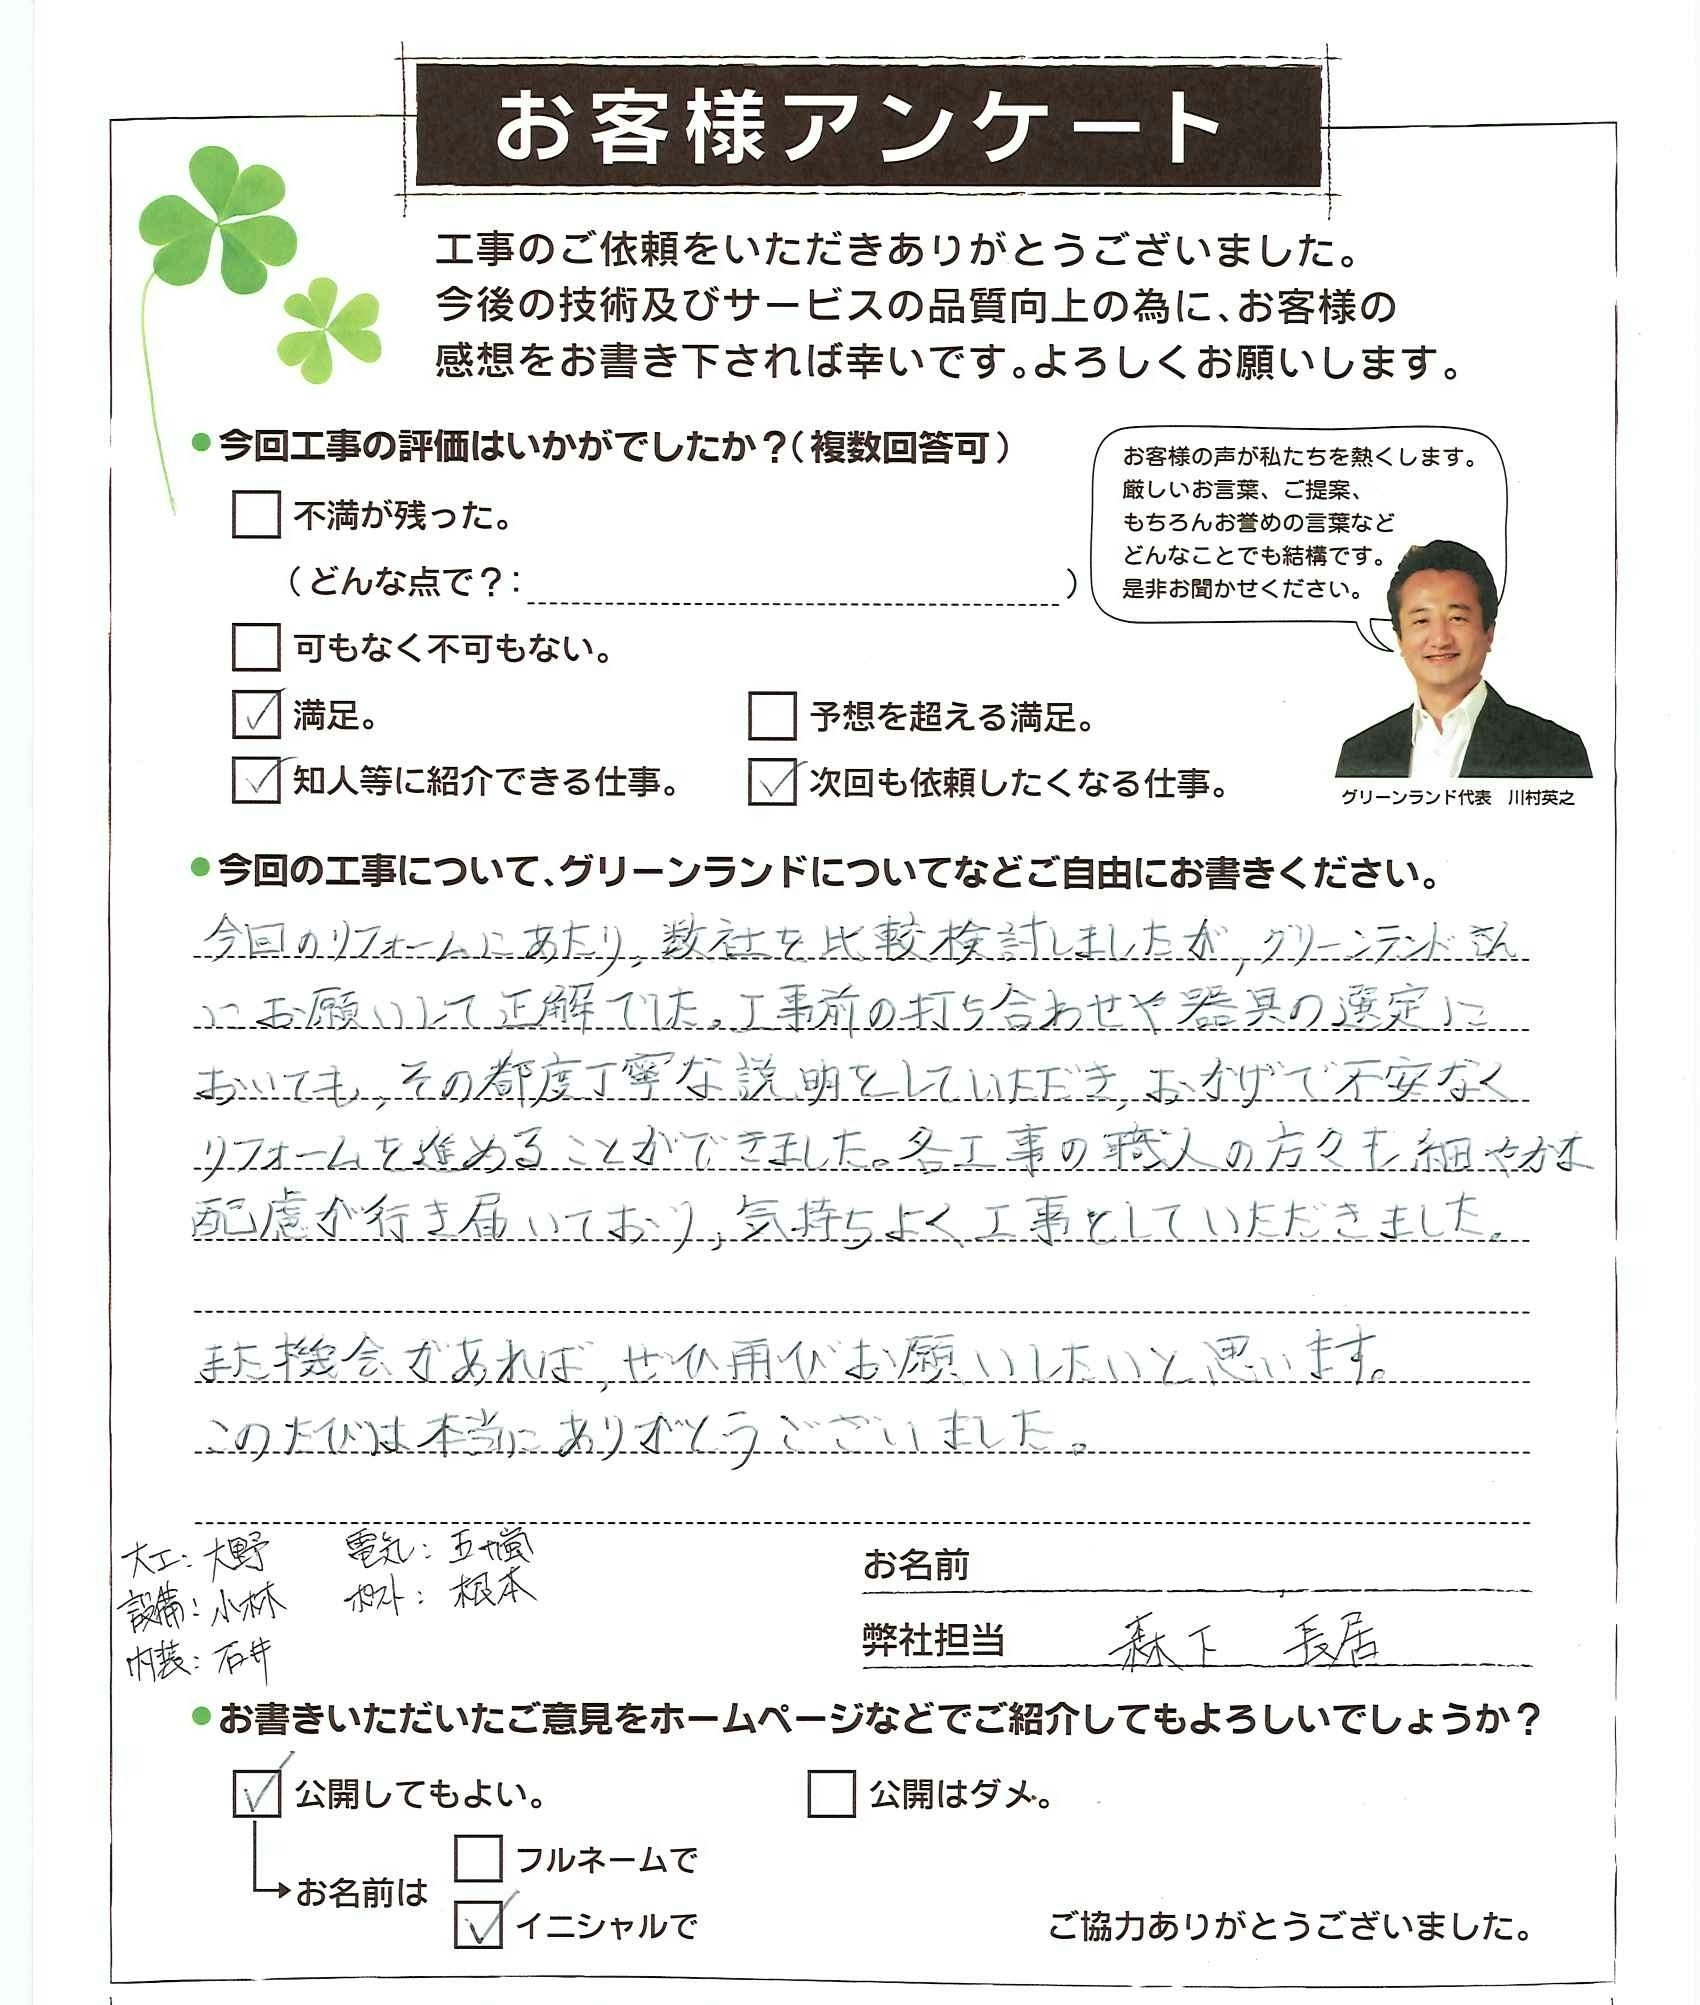 お客様アンケート
工事のご依頼をいただきありがとうございました。
今後の技術及びサービスの品質向上の為に、お客様の
感想をお書き下されば幸いです。よろしくお願いします。
今回工事の評価はいかがでしたか？（複数回答可）
不満が残った。
（どんな点で？： ）
可もなく不可もない。
満足。
予想を超える満足。
知人等に紹介できる仕事。
次回も依頼したくなる仕事。
お客様の声が私たちを熱くします。
厳しいお言葉、ご提案、
もちろんお誉めの言葉など
どんなことでも結構です。
是非お聞かせください。
グリーンランド代表　川村英之
今回の工事について、グリーンランドについてなどご自由にお書きください。
今回のリフォームにあたり，数社を比較検討しましたが，グリーンランドさん
にお願いして正解でした。工事前の打ち合わせや器具の選定に
おいても，その都度丁寧な説明をしていただき，おかげで不安なく
リフォームを進めることができました。各工事の職人の方々も細やかな
配慮が行き届いており，気持ちよく工事をしていただきました。
また機会があれば，ぜひ再びお願いしたいと思います。
このたびは本当にありがとうございました。
大工：大野　電気：五十嵐
設備：小林　ポスト：根本
内装：石井
お名前
弊社担当　森下　長居
お書きいただいたご意見をホームページなどでご紹介してもよろしいでしょうか？
公開してもよい。
公開はダメ。
お名前は
フルネームで
イニシャルで
ご協力ありがとうございました。